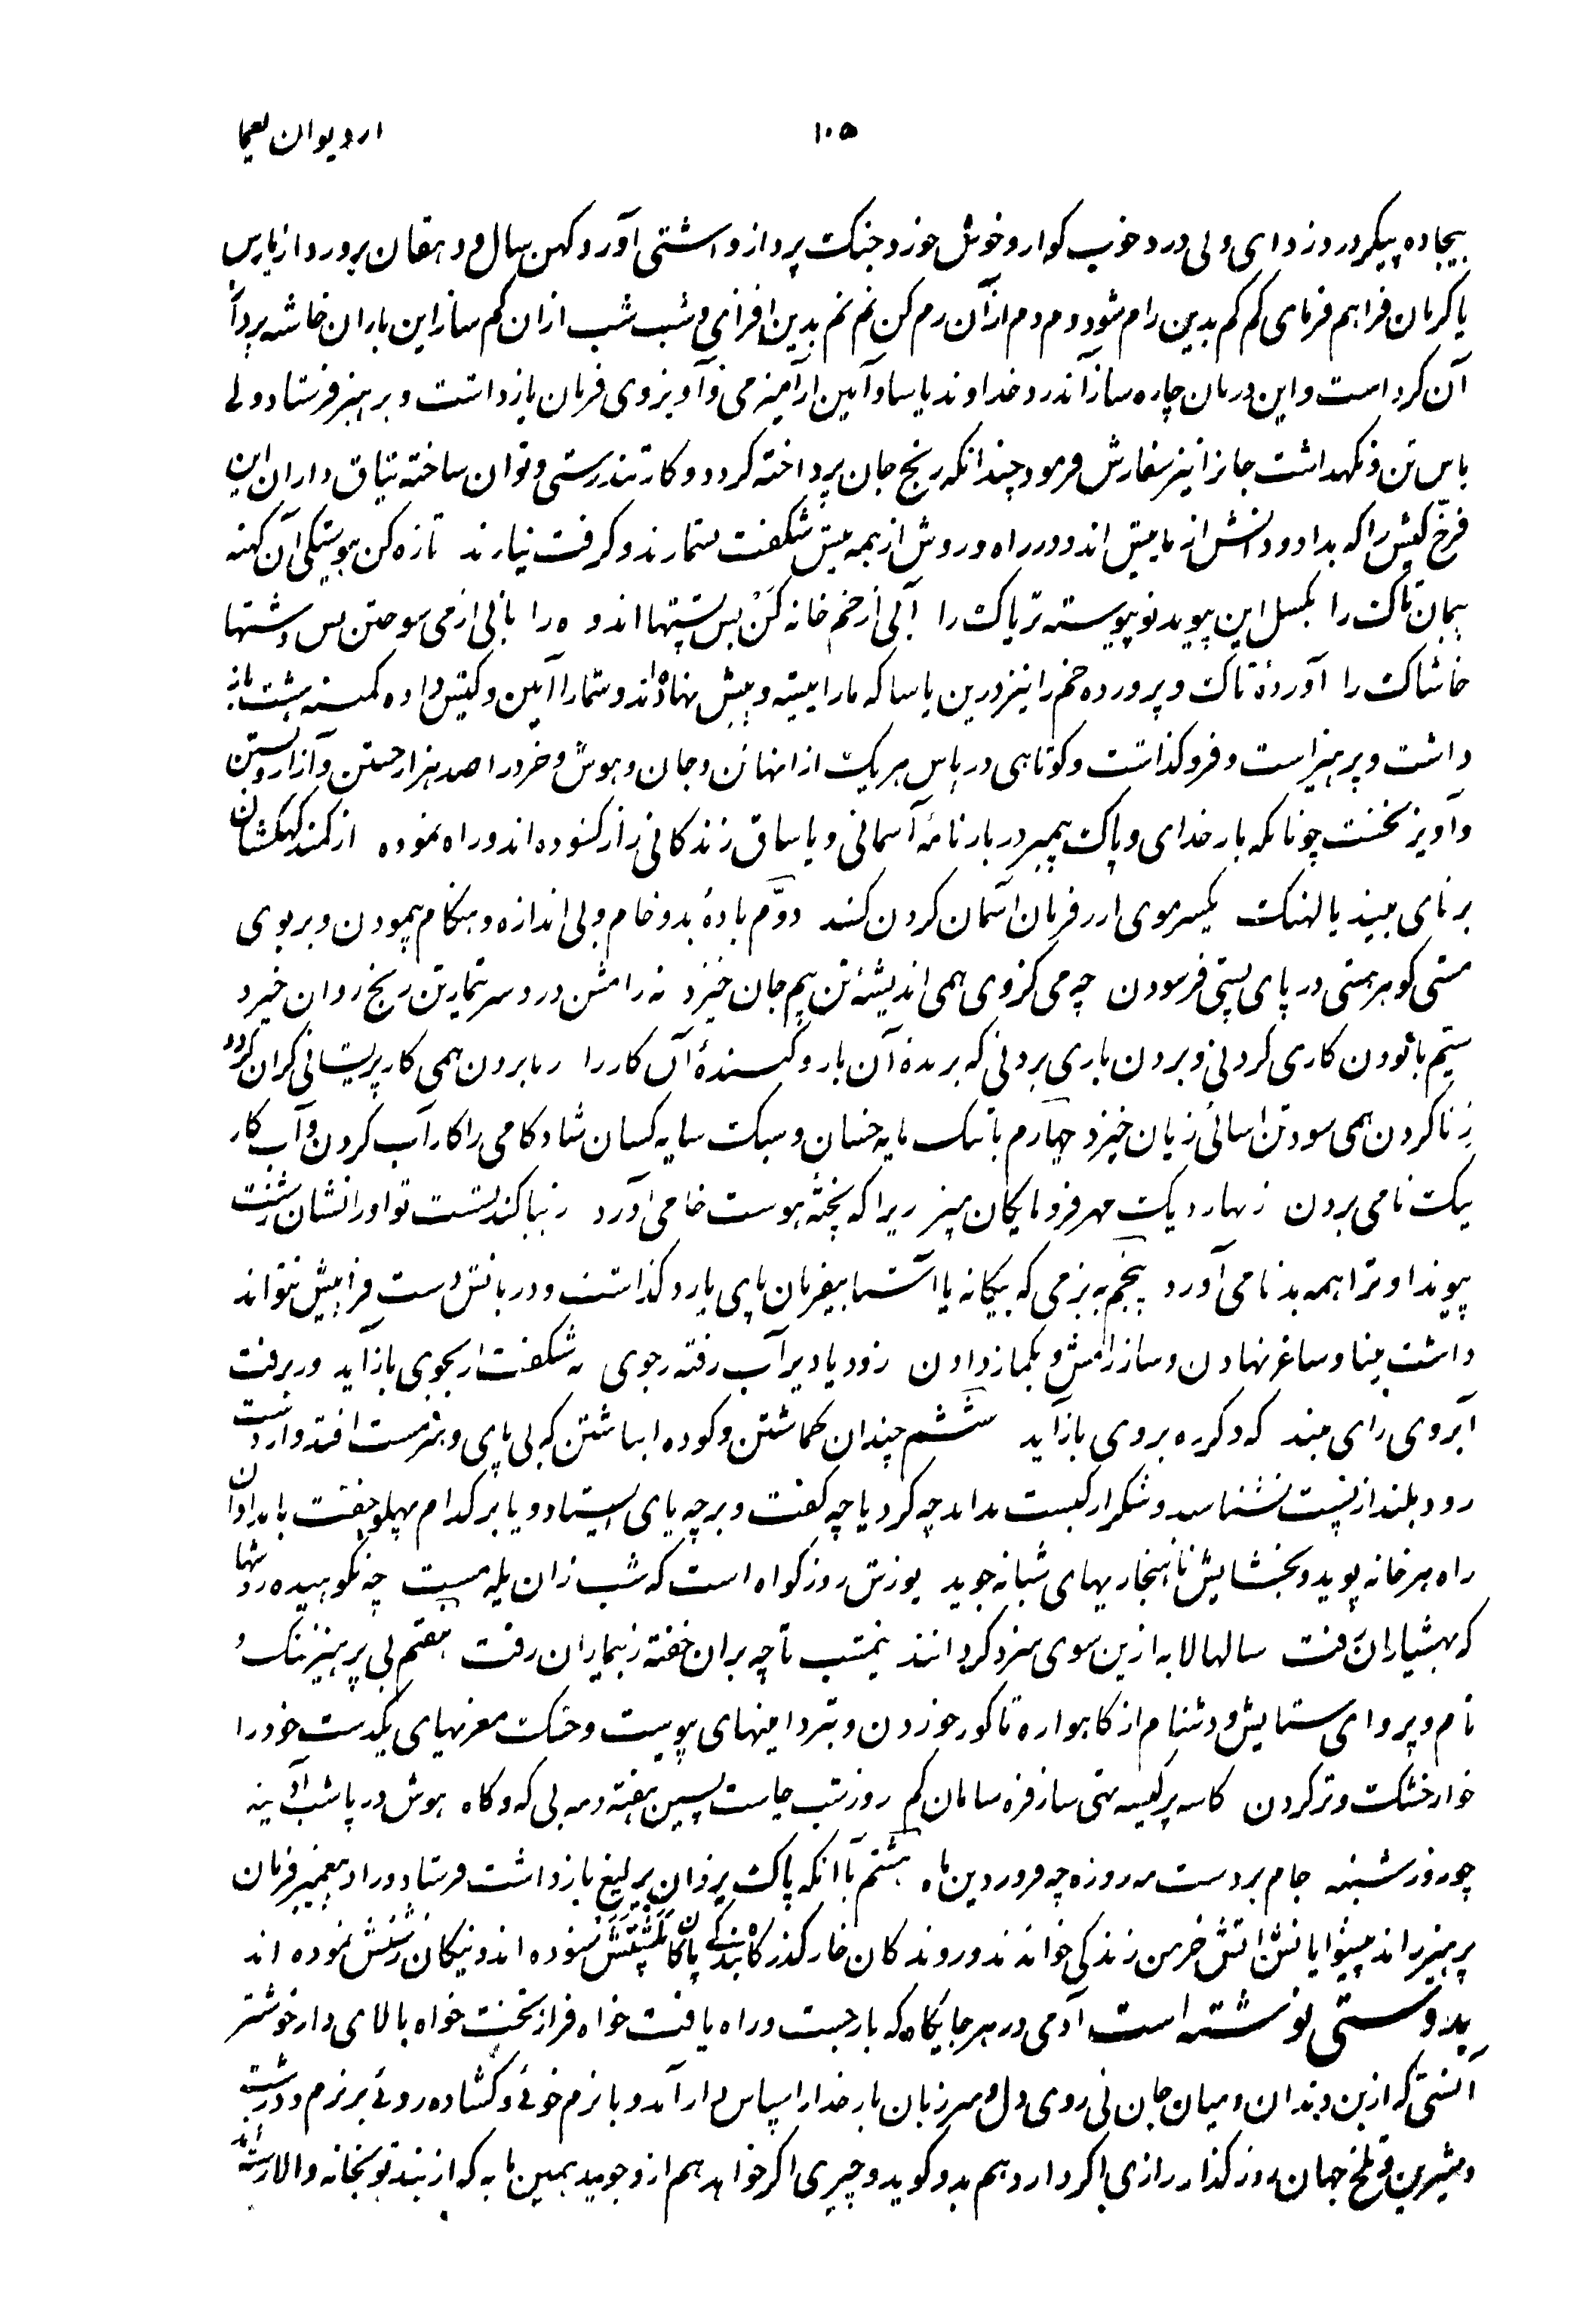 ۱۰۵ از دیوان یغما
بیجاده پیکر درد زدای ولی درد خوب کوار و خوش خور و جنک پرداز و اشتی آور و کهن سال و دهقان پرورد از پارس
یا کرمان فراهم فرمای کم کم بدین رام شو و دم دم از آن رم کن نم نم بدین افزای و شب شب از ان کم ساز این باران خاشه برد
آن کرد است و این درمان چاره ساز آن درد خداوند یاسا و آیین از آمیزمی و آویز وی فرمان بازداشت و پرهیز فرستاد ولی
پاس تن و نکهداشت جانرا نیز سفارش فرمود چندانکه رنج جان پرداخته کردد و کار تندرستی و توان ساخته یتاق داران این
فرخ کیش را که بداد و دانش از ما بیش اند و در راه و روش از همه پیش شکفت نشمارند و کرفت نیارند تازه کن پیوستکی آن کهنه
پیمان تاک را بکسل این پیوند نو پیوسته تریاک را آبی از خم خانه کن بس پشتها اندوه را بابی از می سوختن بس دشتها
خاشاک را آوردهٔ تاک و پرورده خم را نیز درین یاسا که ما را پیشه و پیش نهاد اند و شما را آیین و کیش داده کمینه هشت
داشت و پرهیز است و فروکذاشت و کوتاهی در پاس هر یک از انها تن و جان و هوش و خرد را صد هزار خستن و آزار
و آویز نخست چونانکه بار خدای و پاک پیمبر در بارنامهٔ آسمانی و یاساق زندکانی راز کشوده اند و راه نموده از کمند کهکشان
بر نای بیند پالهنک یکسر موی ار ز فرمان آسمان کردن کشد دوّم بادهٔ بد و خام و بی اندازه و هنکام پیمودن و بر بوی
مستی کوهر هستی در پای پستی فرسودن چه می کز وی همی اندیشهٔ تن بیم جان خیزد نه رامش درد سر تیمار تن رنج روان خیزد
سیّم با تو دن کاری کردنی و بردن باری بردنی که برنده آن بار و کننده آن کار را ز ما بردن همی کار پریشانی کران کردد
ز نا کردن همی سود تن اسانی زیان خیزد چهارم با تنک مایه خسان و سبک سایه کسان شادکامی را کار آب کردن و آب کار
نیک نامی بردن زنهار دیک مهر فرومایکان مپز زیرا که پخته هوست خامی آورد
پیوند او ترا همه بدنامی آورد پنجم به بزمی که بیکانه یا آشنا بیفرمان پای یارد کذاشت و دربانش دست فرا پیش نتواند
داشت مینا و ساغر نهادن و ساز رامش و بکماز دادن زود یا دیر آب رفته ز جوی نه شکفت ار بجوی باز آید ور برفت
آبروی رای مبند که دکر ره بروی باز آید ششم چندان کماشتن و کوده انباشتن که بی پای و سر مست افتد و از دست
رود بلند از پست نشناسد و شکر از کبست نداند چه کرد یا چه کفت و بر چه پای ایستاد و یا بر کدام پهلو خفت بامدادان
راه هر خانه پوید و بخشایش ناهنجاریهای شبانه جوید پوزش روز کواه است که شب زان یله مست چه نکوهیده روشها
که بهشیاران رفت سالها لابه ازین سوی سزد کر دانند نیمشب تا چه بران خفته ز بیماران رفت هفتم بی پرهیز ننک و
نام و پروای ستایش و دشنام از کاهواره تا کور خوردن و بتر دامنهای پیوست و خشک مغزیهای یکدست خود را
خوار خشک و تر کردن کاسه پر کیسه تهی ساز فره سامان کم روز شب چاست پسین هفته و مه بی که و کاه هوش در پا شب آدینه
چو روز شنبه جام بر دست مه روزه چو فروردین ماه هشتم با آنکه پاک یزدان یرلیغ بازداشت فرستاد و راد پیغمبر فرمان
پرهیز راند پیشوایانش آتش خرمن زندکی خواندند و روندکان خار کذرکاه بندکی پاکان نکوهش نموده اند
بدوستی نوشته است آدمی در هر جایکاه که بار جست و راه یافت خواه فراز تخت خواه بالای دار خوشتر
آنستی که از بن دندان و میان جان نی روی دل و سر زبان بار خدا را سپاس دار آمد و با نرم خوئی و کشاده روئی بر نرم و درشت
و شیرین و تلخ جهان روز کذارد رازی اکر دارد هم بدو کوید و چیزی اکر خواهد هم ازو جوید همین مایه که از بند توبخانه والا رسته اند